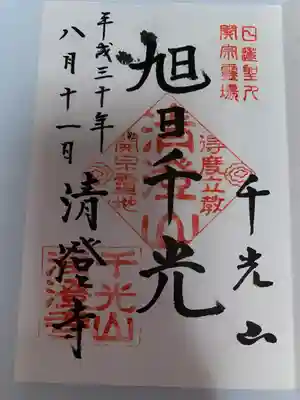 日蓮聖人
開宗靈場
千光山
旭日千光
得度立教
清澄山
開宗霊地
平成三十年
八月十一日
清澄寺
千光山
清澄寺